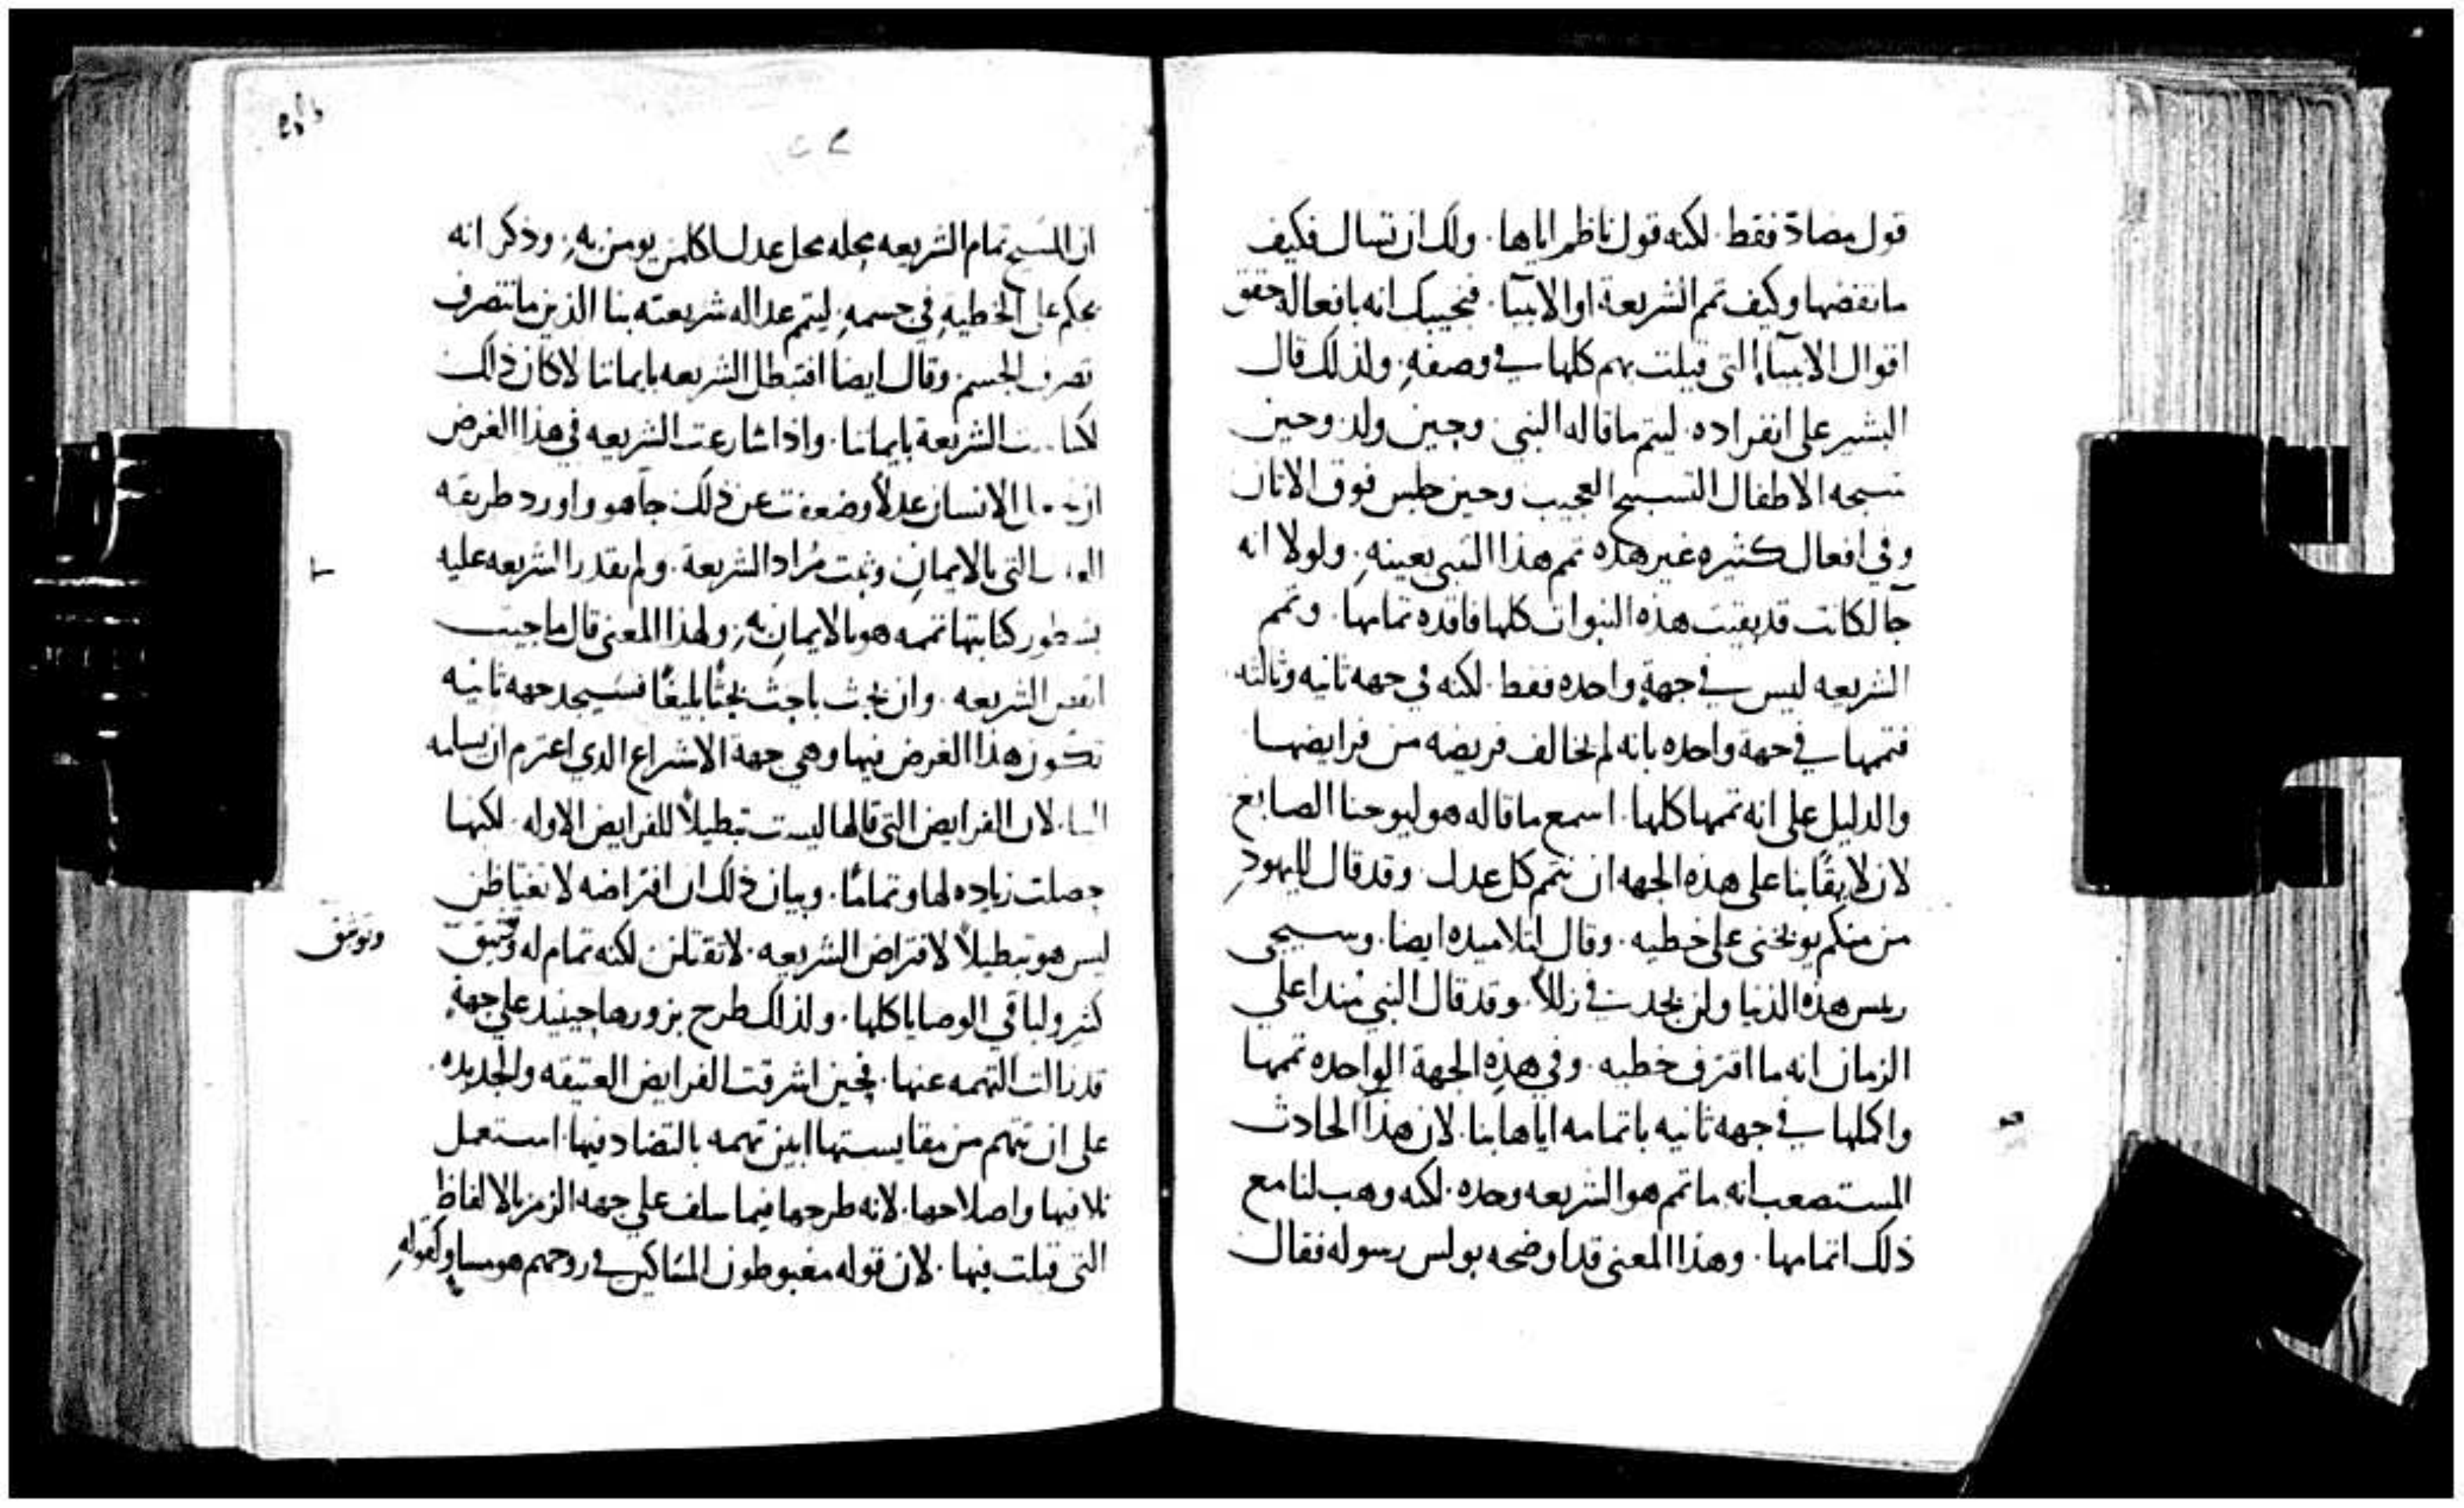 قول مضادّ فقط. لكنه قول ناظم اياها. ولك ان تسال فكيف
ما نقضها وكيف تمم الشريعة او الانبيآ. فنجيبك انه بافعاله حقق
اقوال الانبيآ التي قيلت بهم كلها في وصفهِ. ولذلك قال
البشير على انفراده. ليتم ما قاله النبي. وحين ولد. وحين
سبحه الاطفال التسبيح العجيب وحين جلس فوق الاتان
وفي افعال كثيره غير هذه تمم هذا النبي بعينهِ. ولولا انه
جآ لكانت قد بقيت هذه النبوات كلها فاقده تمامها. وتمم
الشريعه ليس في جهةٍ واحده فقط. لكنه في جهه ثانيه وثالثه.
فتممها في جهة واحده بانه لم يخالف فريضه من فرايضها
والدليل على انه تممها كلها. اسمع ما قاله هو ليوحنا الصابغ
لان لايقًا بنا على هذه الجهه ان نتمم كل عدل. وقد قال لليهودِ
من منكم يوبخني على خطيه. وقال لتلاميذه ايضا. وسيجي
ريس هذه الدنيا ولن يجد فيَّ زللاً. وقد قال النبي منذ اعلي
الزمان انه ما اقترف خطيه. وفي هذهِ الجهة الواحده تممها
واكملها في جهه ثانيه باتمامه اياها بنا. لان هذا الحادث
المستصعب انه ما تمم هو الشريعه وحده. لكنه وهب لنا مع
ذلك اتمامها. وهذا المعنى قد اوضحه بولس رسوله فقال
ان المسيح تمام الشريعه بحله محل عدل لكل من يومن بهِ. وذكر انه
يحكم على الخطيهِ في جسمهِ. ليتم عدالة شريعته بنا الذين ما نتصرف
تصرف الجسم. وقال ايضا افتبطل الشريعه بايماننا لا كان ذلك
الشريعة بايماننا. واذا شارعت الشريعه في هذا الغرض
الانسان عدلاً وضعفت عن ذلك جآ هو واورد طريقه
التي بالايمانِ وتمت مُراد الشريعة. ولم تقدر الشريعه عليه
بسطور كتابتها تممه هو بالايمانِ بهِ. ولهذا المعنى قال ما جيت
انقض الشريعه. وان بحث باحث بحثًا بليغًا فسيجد جهه ثانيه
تكون هذا الغرض فيها وهي جهة الاشراع الذي اعتزم ان يسلمه
الينا. لان الفرايض التي قالها ليست تبطيلاً للفرايض الاوله. لكنها
حصلت زياده لها وتمامًا. وبيان ذلك ان افتراضه لا تغتاظن
ليس هو تبطيلاً لافتراض الشريعه. لا تقتلن لكنه تمام له وتثيق
وتوثق
كثير ولباقي الوصايا كلها. ولذلك طرح بزورها حينيذ على جهةٍ
قد زالت التهمه عنها. فحين اشرقت الفرايض العتيقه والجديده.
على ان تتهم من مقايستها ابين تهمه بالتضاد فيها. استعمل
تلافيها واصلاحها. لانه طرحها فيما سلف على جهه الزمز بالالفاظِ
التي قيلت فيها. لان قوله مغبوطون المساكين في روحهم هو مساوٍ لقولهِ